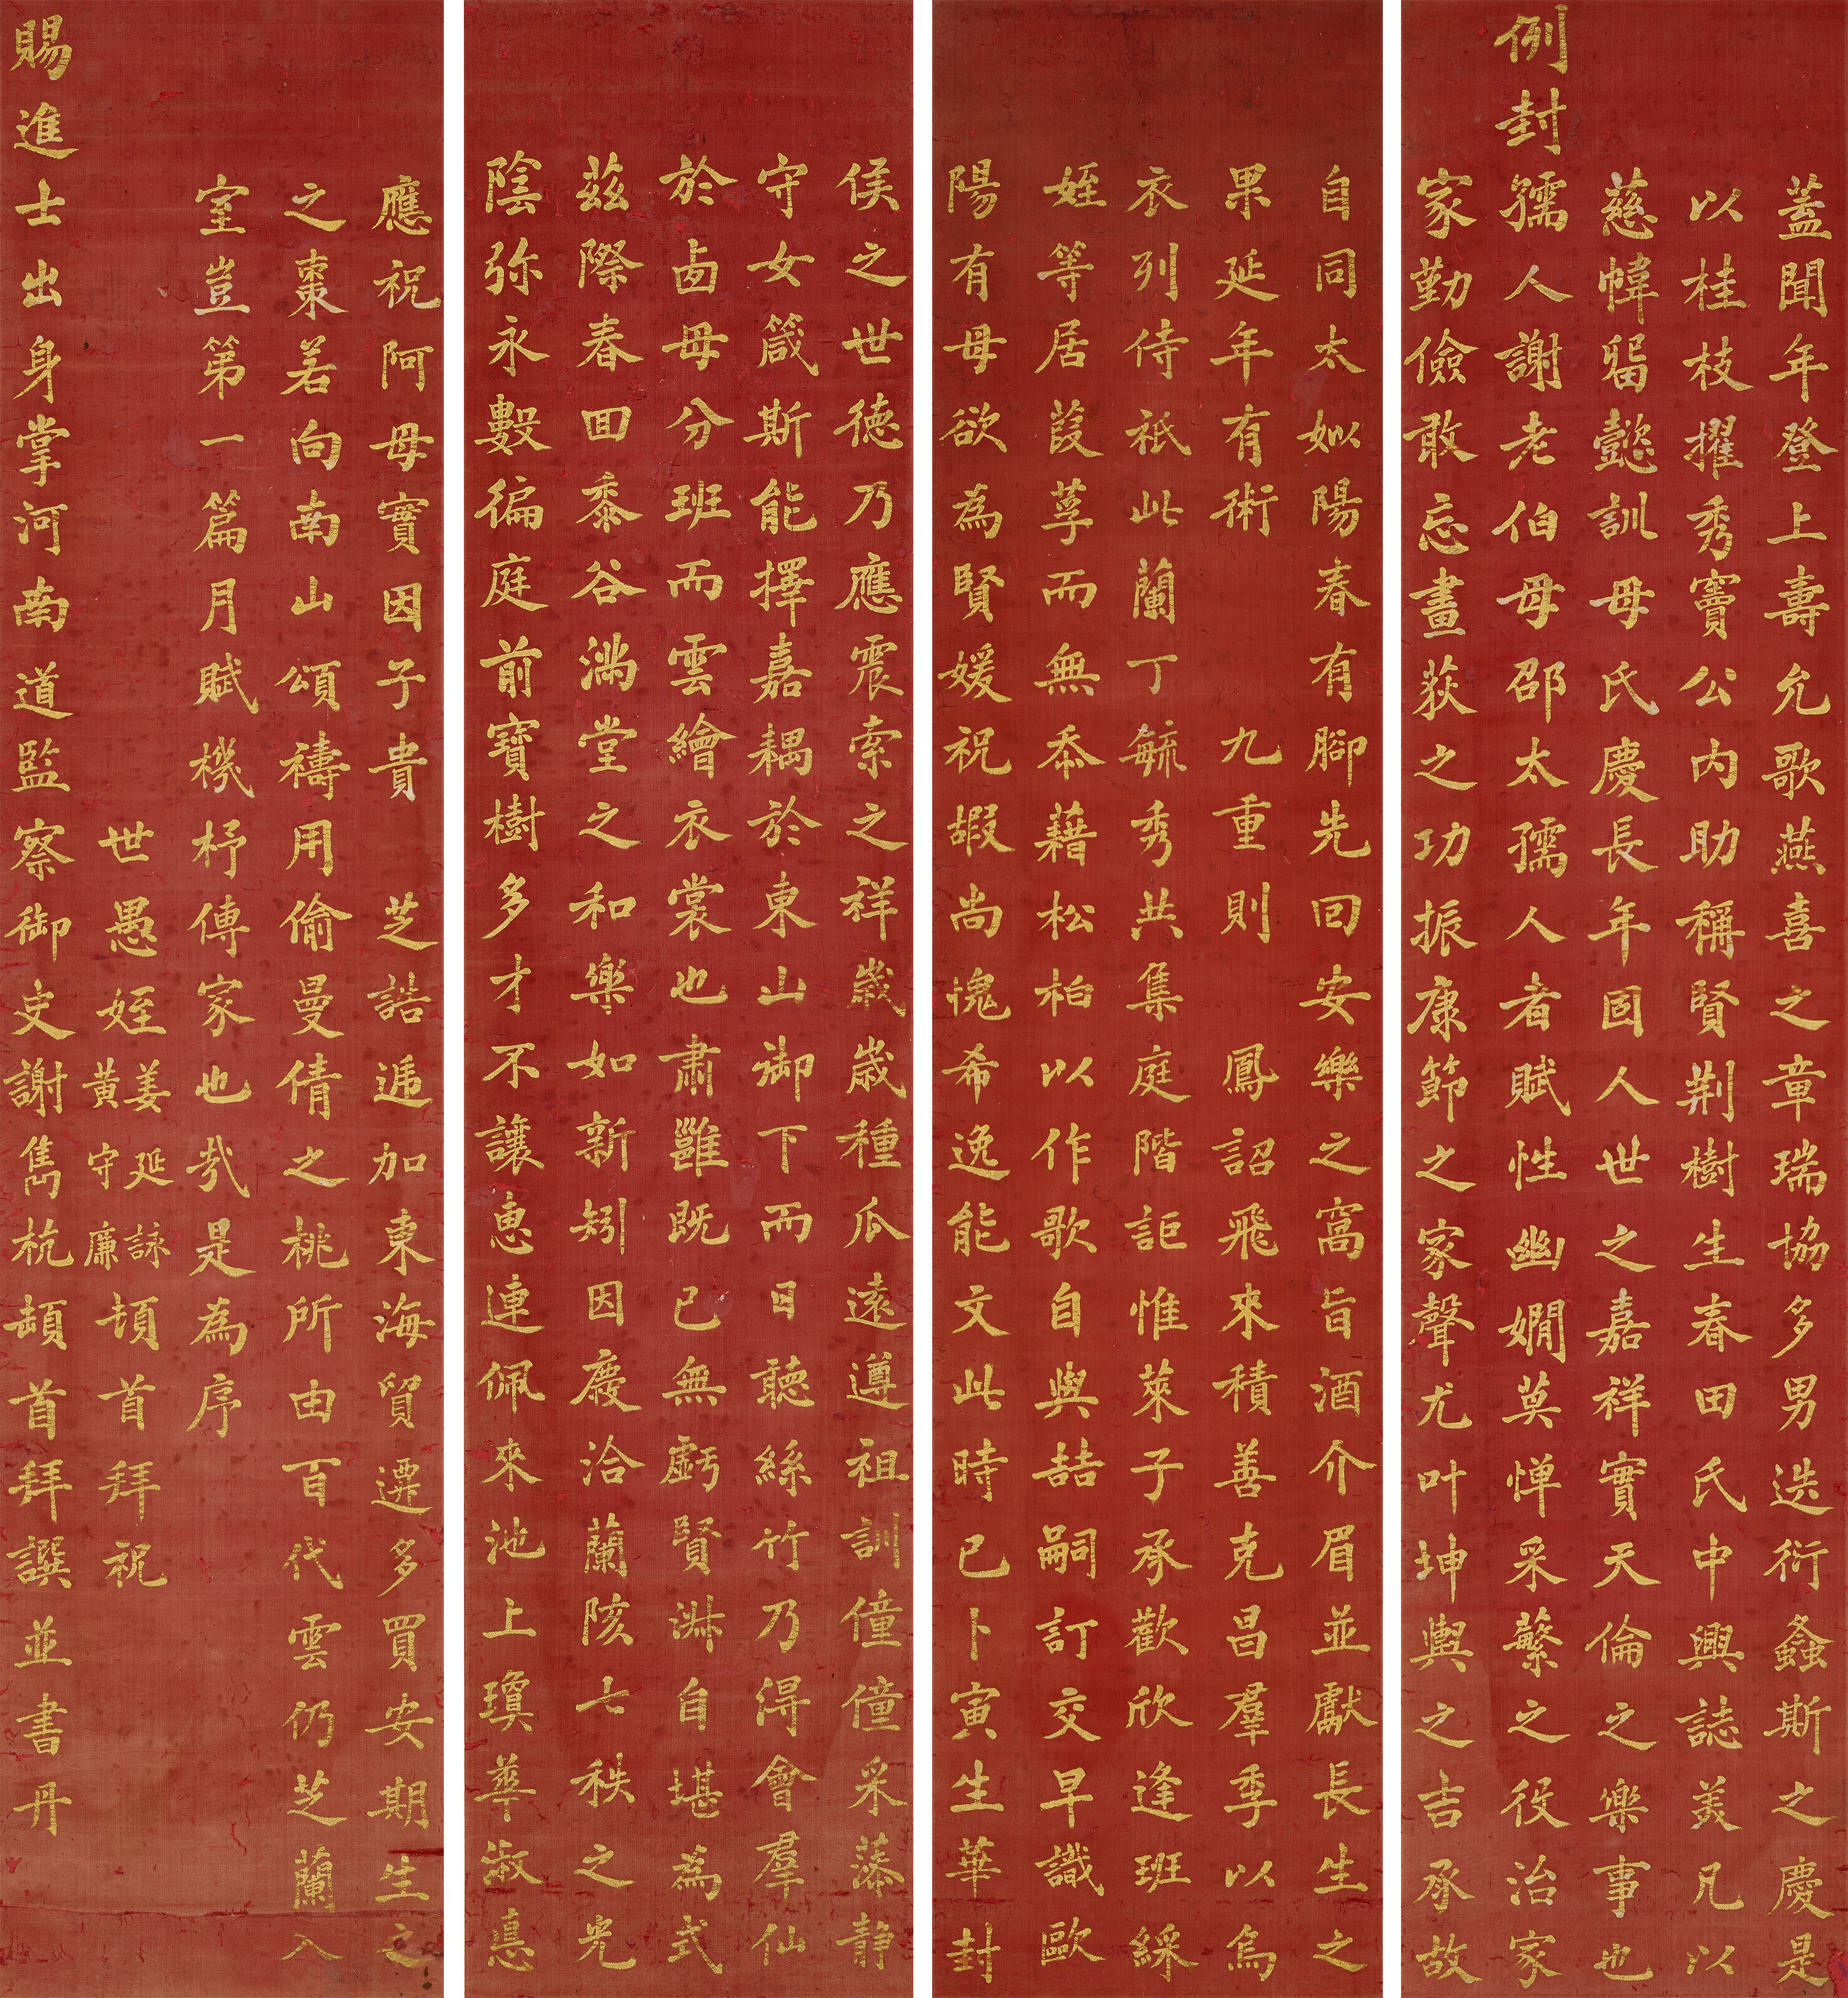 蓋聞年登上壽允歌燕喜之章瑞協多男迭衍螽斯之慶是
以桂枝擢秀竇公內助稱賢荆樹生春田氏中興誌美凡以
慈幃畱懿訓母氏慶長年固人世之嘉祥實天倫之樂事也
例封孺人謝老伯母邵太孺人者賦性幽嫺莫惮采蘩之役治家
家勤儉敢忘畫荻之功振康節之家聲尤叶坤輿之吉承故
自同太姒陽春有腳先回安樂之窩旨酒介眉並獻長生之
果延年有術九重則鳳詔飛來積善克昌羣季以烏
衣列侍祇此蘭丁毓秀共集庭階詎惟萊子承歡欣逢班綵
姪等居葭莩而無忝藉松柏以作歌自與喆嗣訂交早識歐
陽有母欲為賢媛祝嘏尚愧希逸能文此時已卜寅生華封
侯之世德乃應震索之祥歲歲種瓜遠遵祖訓僮僮采藻靜
守女箴斯能擇嘉耦於東山御下而日聽絲竹乃得會羣仙
於卣母分班而雲繪衣裳也肅雝既已無虧賢淋自堪為式
茲際春回黍谷滿堂之和樂如新矧因慶洽蘭陔七秩之光
陰弥永數徧庭前寶樹多才不讓惠連佩來池上瓊華淑悳
應祝阿母實因子貴芝誥遞加東海貿遷多買安期生之
之棗若向南山頌禱用偷曼倩之桃所由百代雲仍芝蘭入
室豈第一篇月賦機杼傳家也哉是為序
世愚姪姜延詠黃守廉頓首拜祝
賜進士出身掌河南道監察御史謝雋杭頓首拜譔並書丹